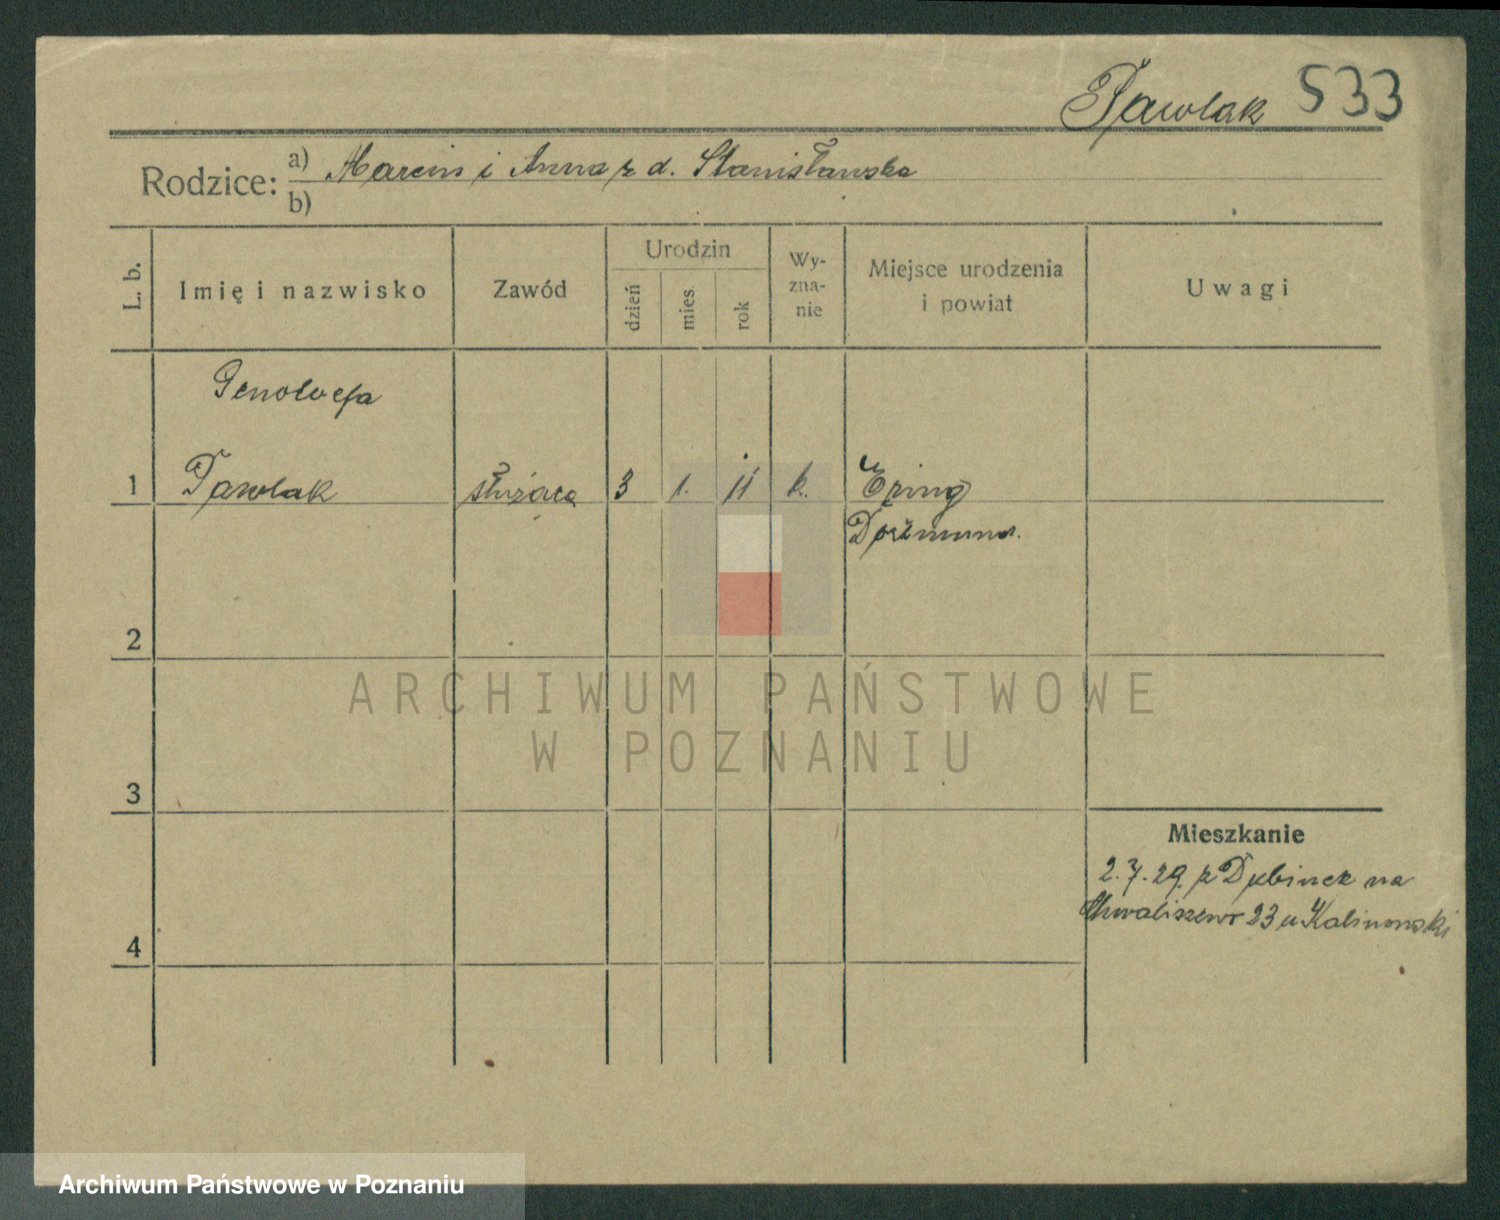 Pawlak 533
Rodzice: a) Marcin i Anna z d. Stanisławska
b)
L. b.
Imię i nazwisko
Zawód
Urodzin
dzień
mies
rok
Wy-
zna-
nie
Miejsce urodzenia
i powiat
Uwagi
Genowefa
1 Pawlak służąca 3 1. 11 k. Eving
Dortmund.
2
3
4
Mieszkanie
2.7.29. z na
Chwaliszewo 23 u Kalinowski
ARCHIWUM PAŃSTWOWE
W POZNANIU
Archiwum Państwowe w Poznaniu